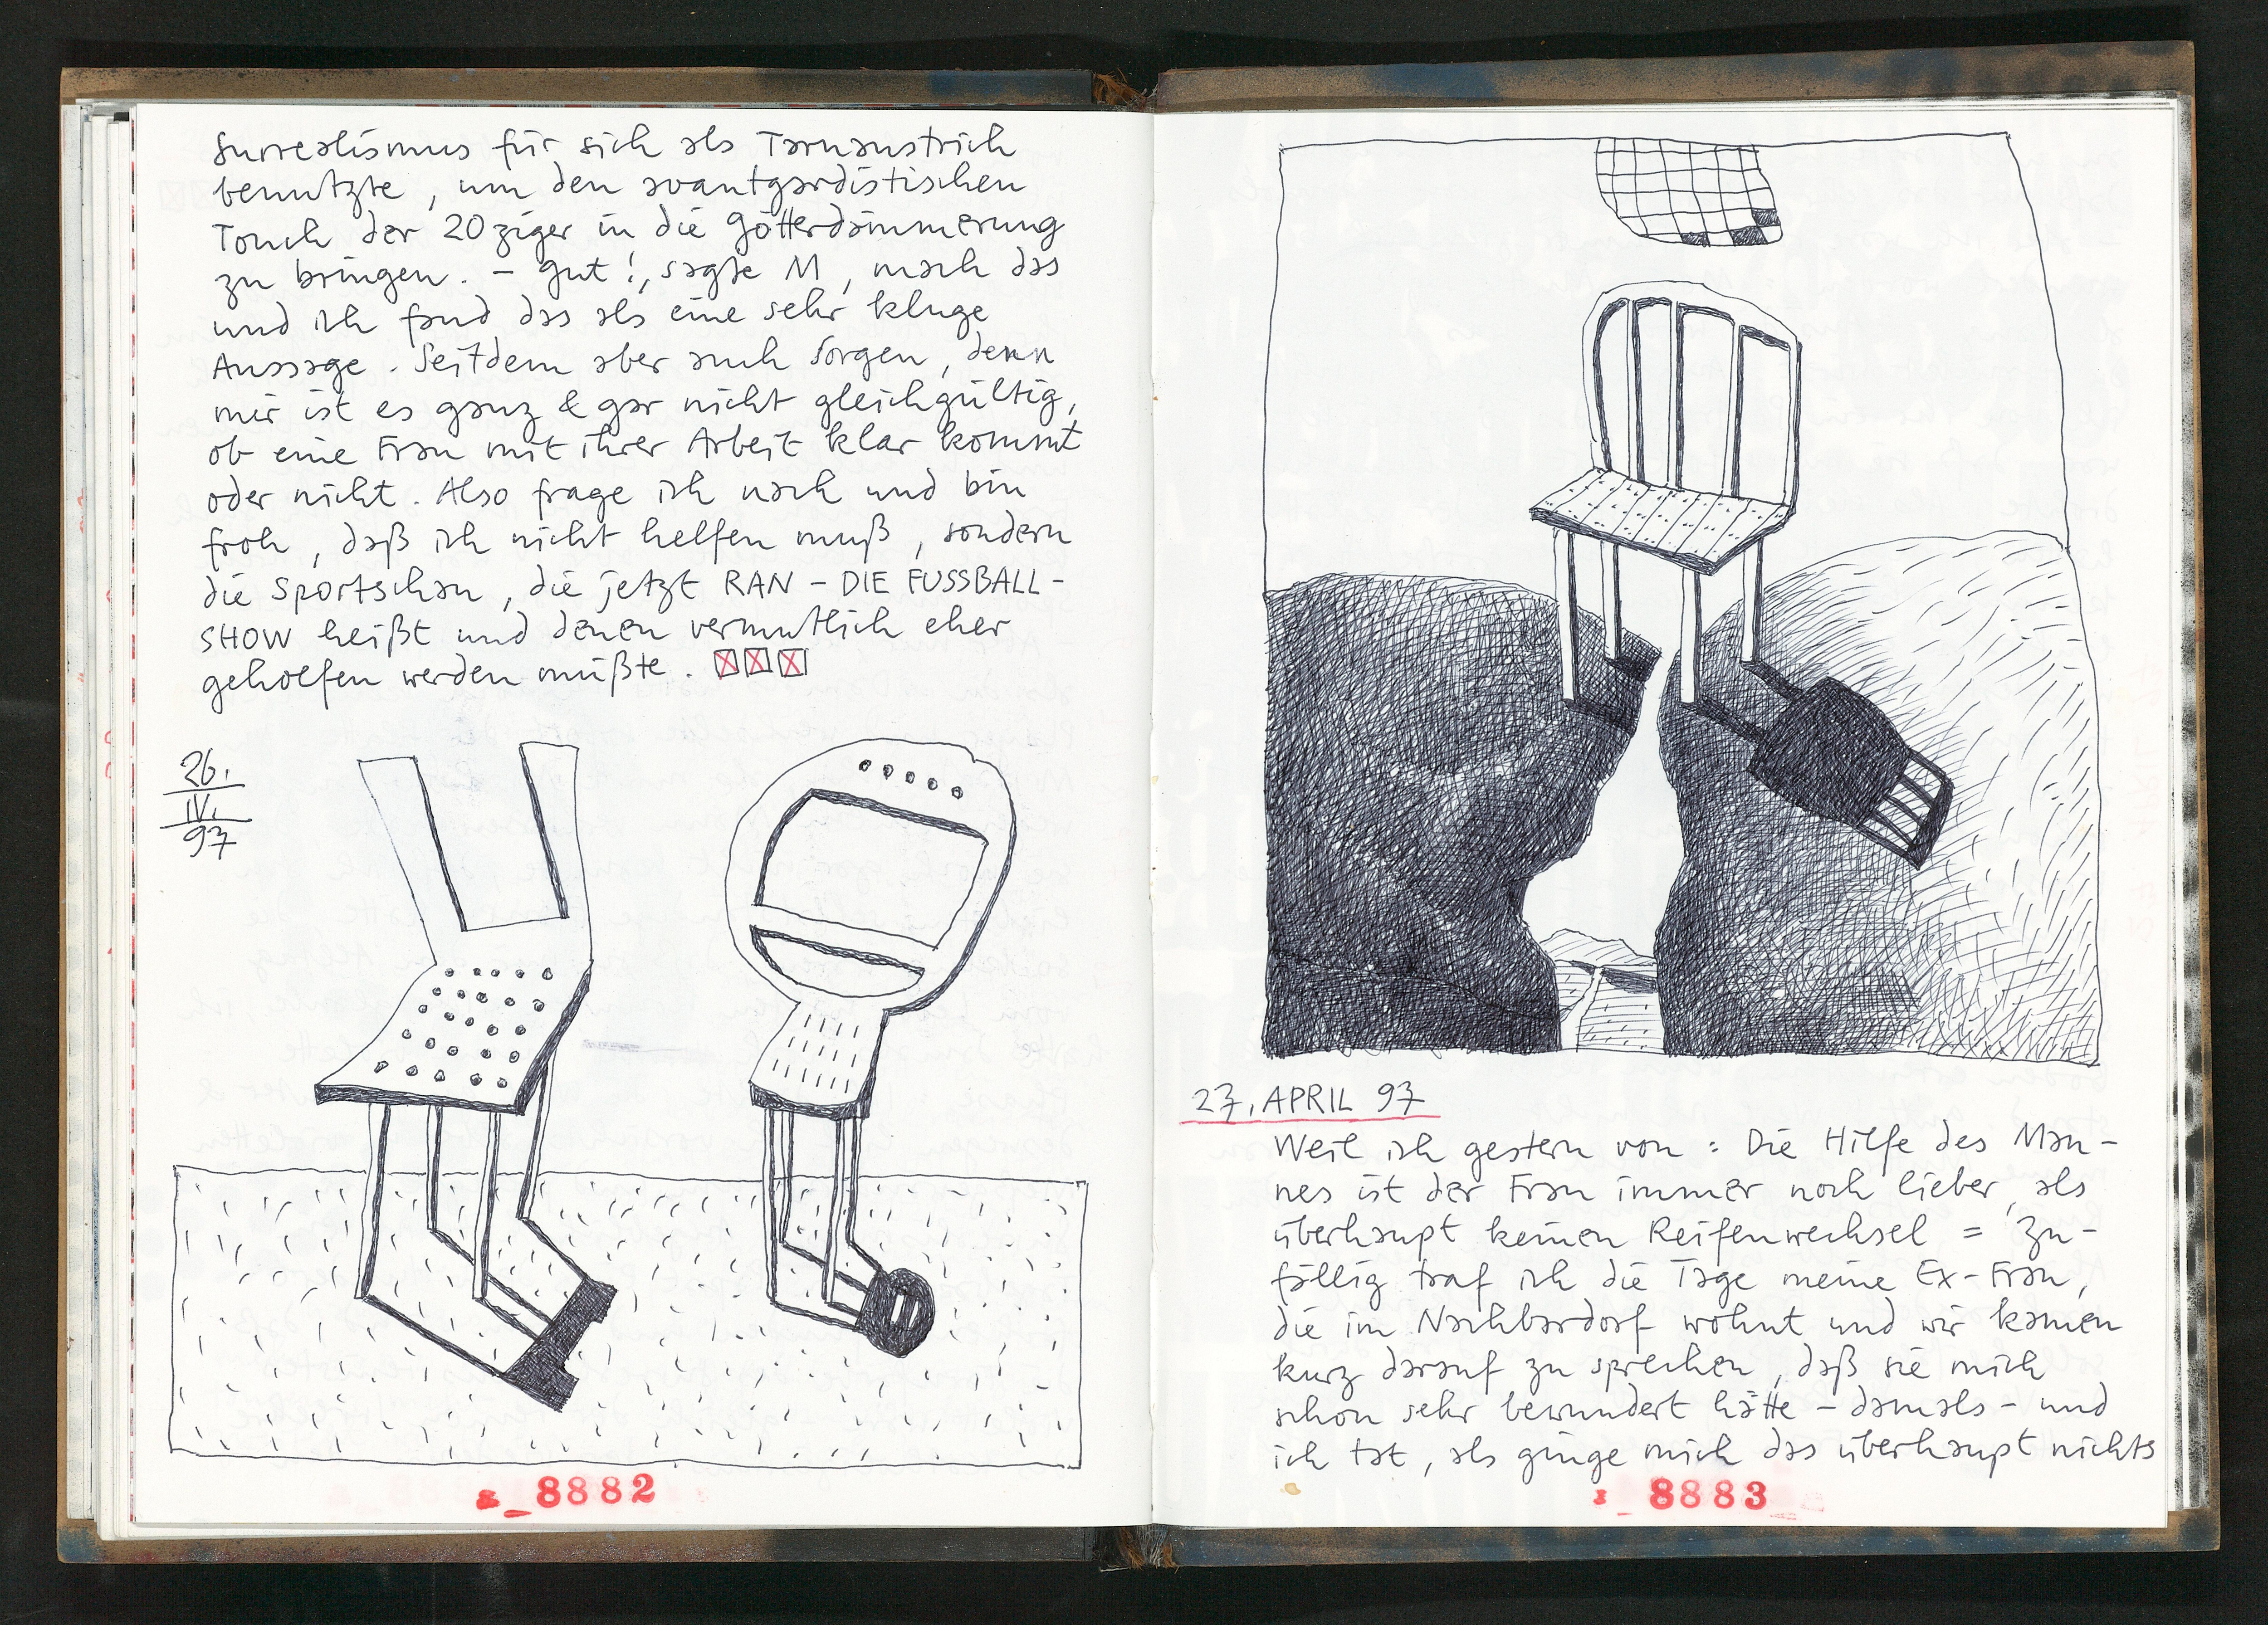 Surrealismus für sich als Tarnanstrich
benutzte, um den avantgardistischen
Touch der 20ziger in die Götterdämmerung
zu bringen. – gut!, sagte M, mach das
und ich fand das als eine sehr kluge
Aussage. Seitdem aber auch Sorgen, denn
mir ist es ganz & gar nicht gleichgültig,
ob eine Frau mit ihrer Arbeit klar kommt
oder nicht. Also frage ich nach und bin
froh, daß ich nicht helfen muß, sondern
die Sportschau, die jetzt RAN – DIE FUSSBALL-
SHOW heißt und denen vermutlich eher
geholfen werden müßte.
26.
IV.
97
8882
27. APRIL 97
Weil ich gestern von : Die Hilfe des Man-
nes ist der Frau immer noch lieber, als
überhaupt keinen Reifenwechsel = Zu-
fällig traf ich die Tage meine Ex-Frau,
die im Nachbardorf wohnt und wir kamen
kurz darauf zu sprechen, daß sie mich
schon sehr bewundert hätte – damals – und
ich tat, als ginge mich das überhaupt nichts
8883